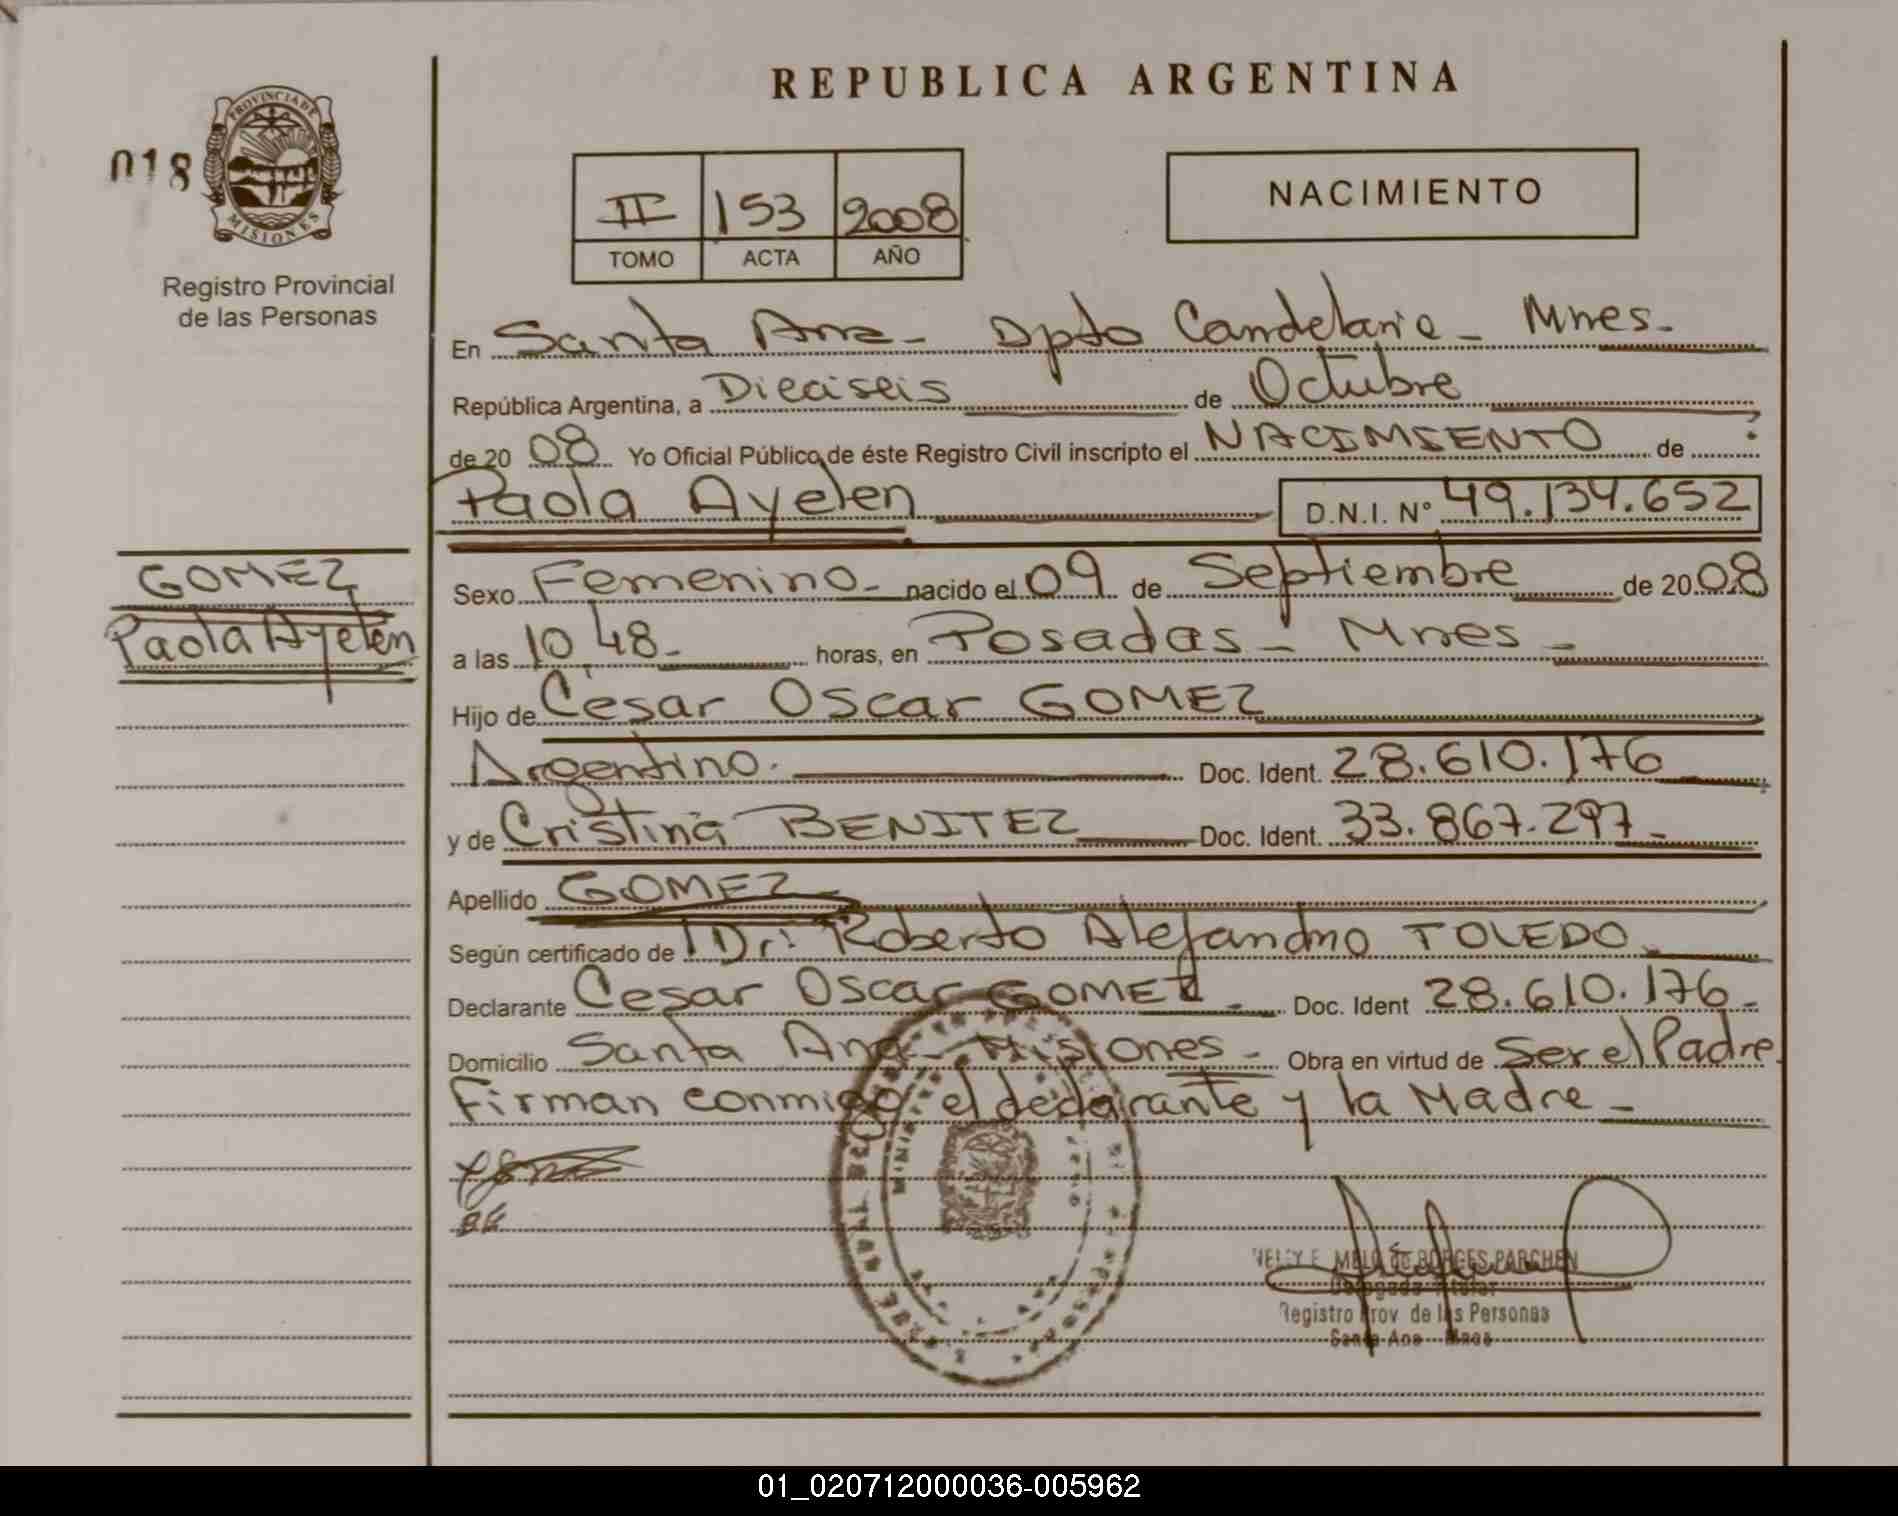 REPUBLICA ARGENTINA
018
PROVINCIA DE
MISIONES
Registro Provincial
de las Personas
II 153 2008
TOMO ACTA AÑO
NACIMIENTO
En Santa Ana - Dpto Candelaria - Mnes.
República Argentina, a Dieciseis de Octubre
de 20 08 Yo Oficial Público de éste Registro Civil inscripto el NACIMIENTO de :
Paola Ayelen D.N.I. N° 49.134.652
GOMEZ
Paola Ayelen
Sexo Femenino - nacido el 09 de Septiembre de 20 08
a las 10,48 - horas, en Posadas - Mnes -
Hijo de Cesar Oscar GOMEZ
Argentino. Doc. Ident. 28.610.176
y de Cristina BENITEZ Doc. Ident. 33.867.297 -
Apellido GOMEZ -
Según certificado de Dr: Roberto Alejandro TOLEDO
Declarante Cesar Oscar GOMEZ - Doc. Ident 28.610.176 -
Domicilio Santa Ana - Misiones - Obra en virtud de Ser el Padre
Firman conmigo el declarante y la Madre -
NELLY E. MELO de BORGES PARCHEN
Delegada Titular
Registro Prov de las Personas
Santa Ana Mnes
01_020712000036-005962